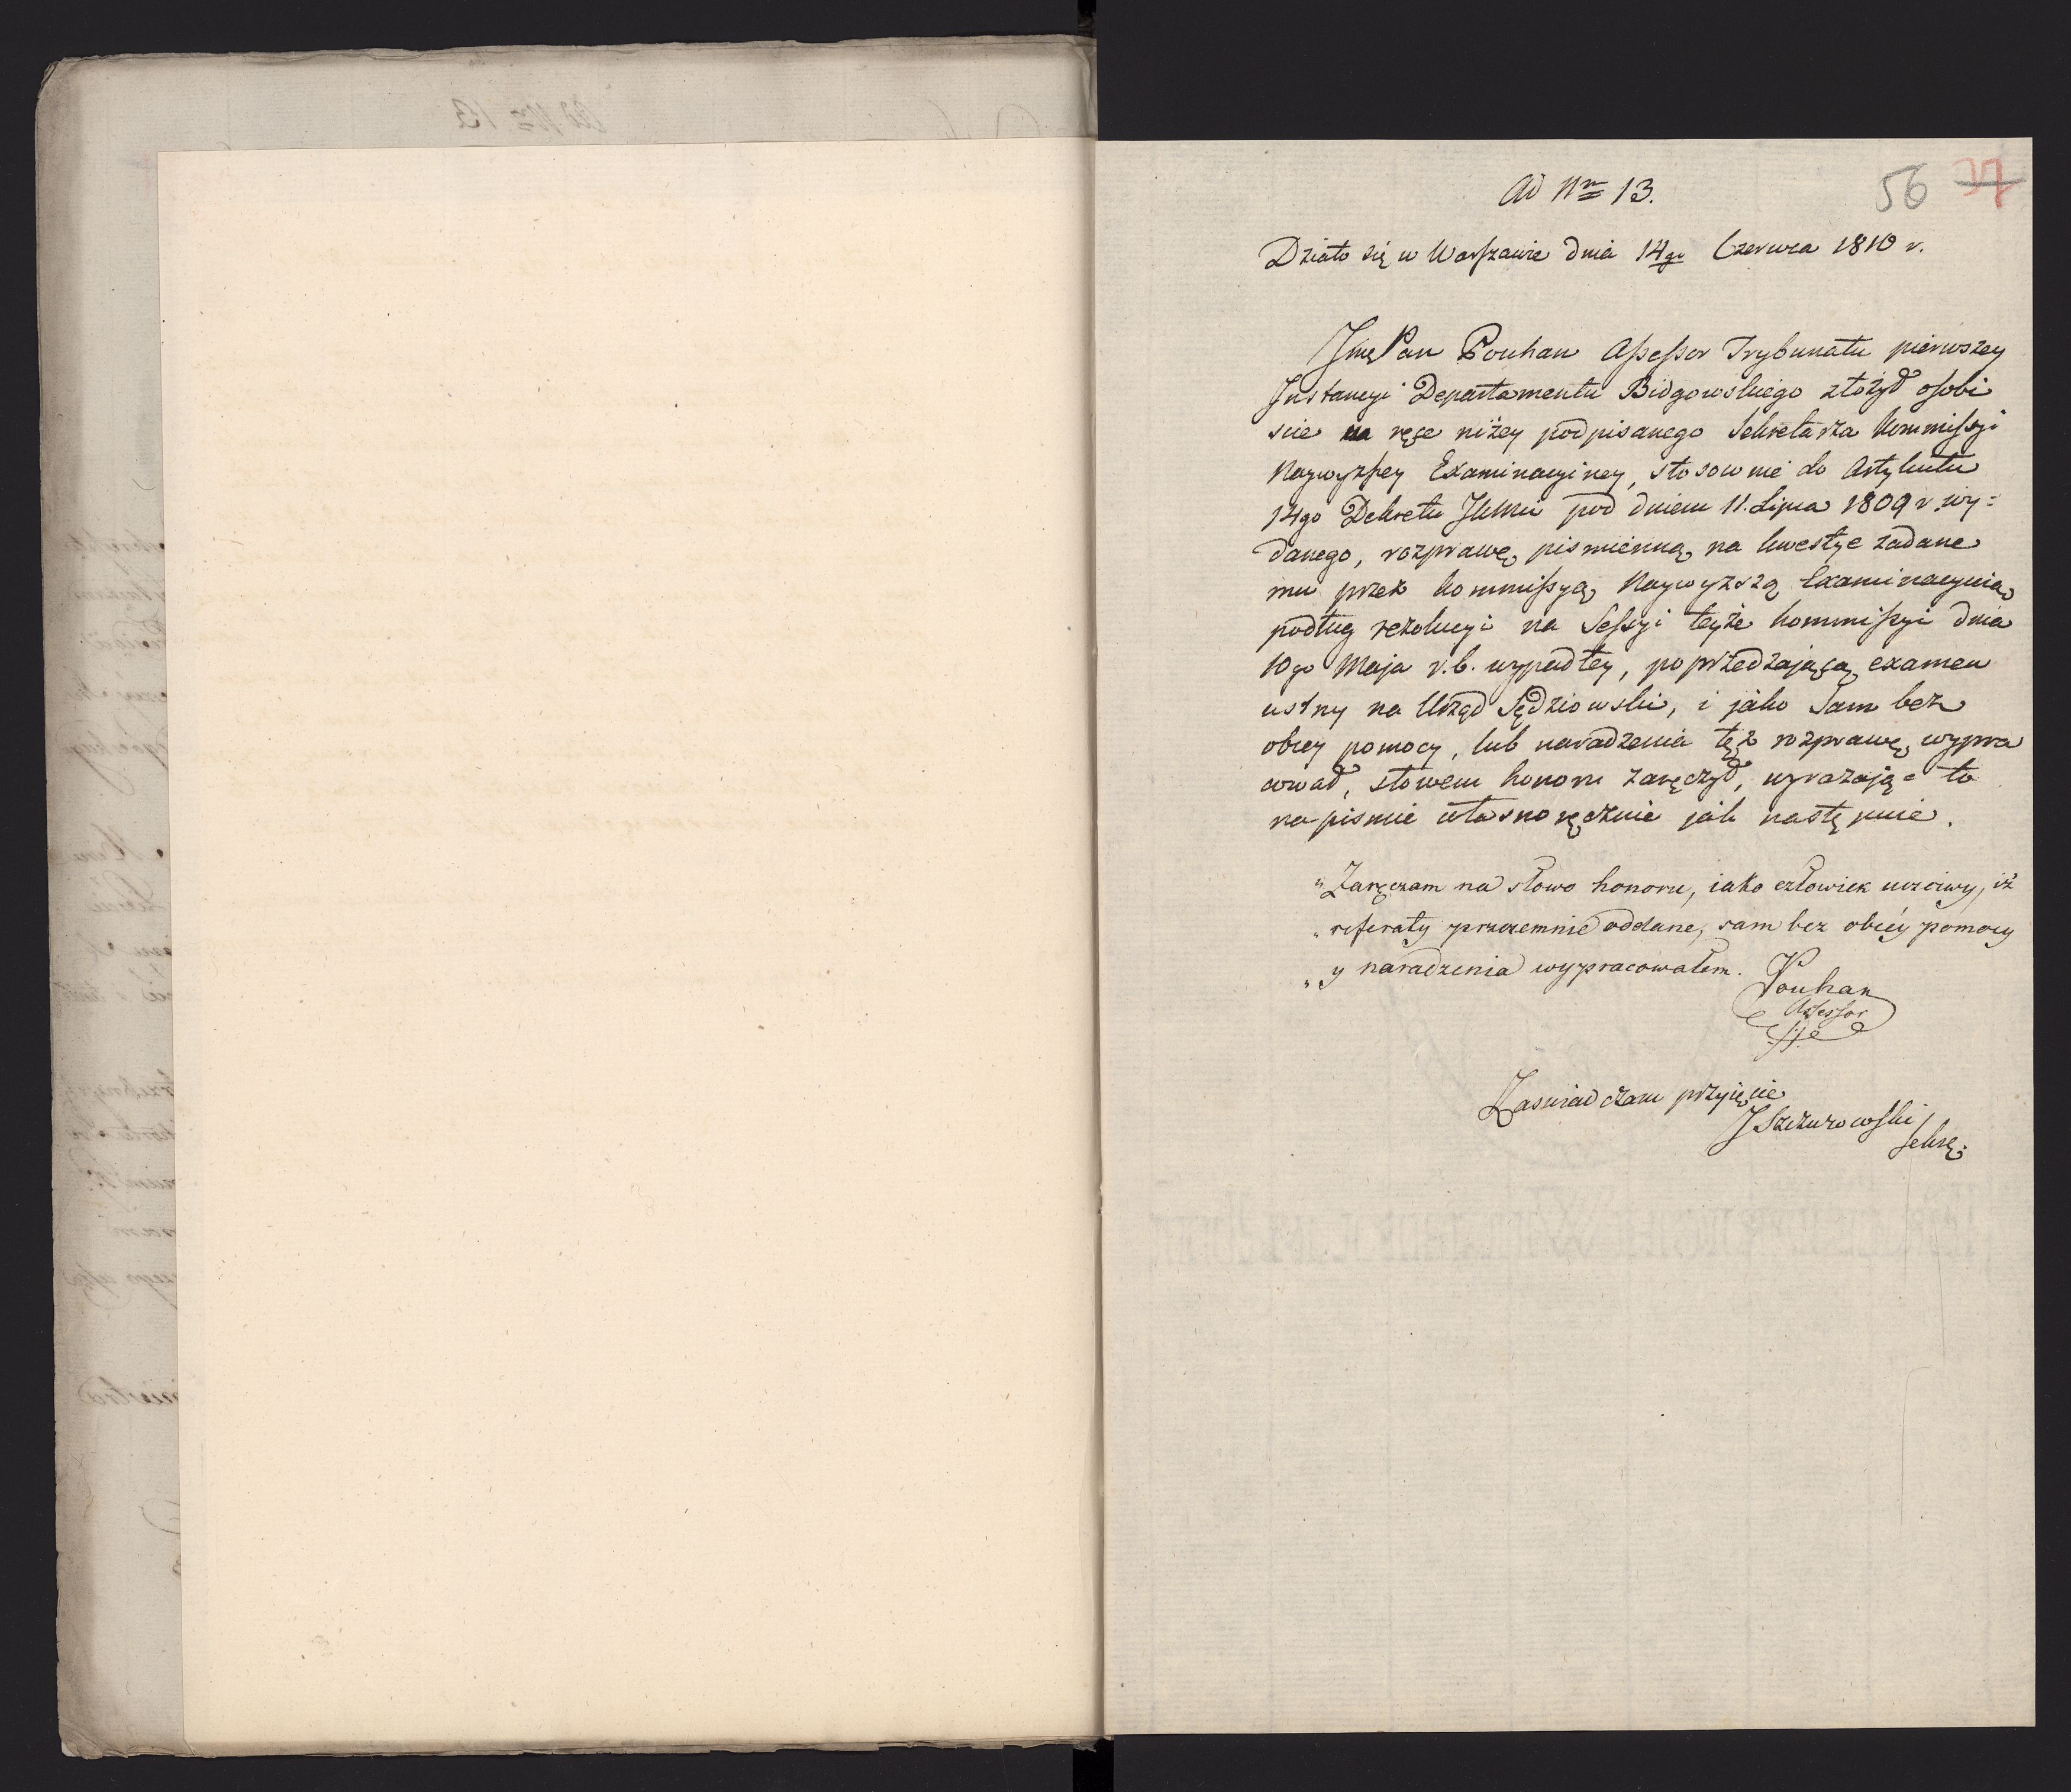 Ad Nrm 13.
56 37
Działo się w Warszawie dnia 14go Czerwca 1810 r.
Jmć Pan Pouhan Assessor Trybunału pierwszey
Instancyi Departamentu Bidgowskiego złożył osobi
ście na ręce niżey podpisanego Sekretarza Kommissyi
Naywyższey Examinacyiney, stosownie do Artykułu
14go Dekretu JKMci pod dniem 11. Lipca 1809 r. wy=
danego, rozprawę pismienną na kwestye zadane
mu przez Kommissyą Naywyższą Examinacyiną
podług rezolucyi na Sessyi teyże Kommissyi dnia
10go Maja r. b. wypadłey, poprzedzającą examen
ustny na Urząd Sędziowski, i jako Sam bez
obcey pomocy, lub naradzenia tęż rozprawę wypra
cował, słowem honoru zaręczył, wyrażając to
na pismie własnoręcznie jak następuie.
„Zaręczam na słowo honoru, iako człowiek uczciwy, iż
„referaty przezemnie oddane, sam bez obcéy pomocy
„y naradzenia wypracowałem.
Pouhan
Assessor
Zaswiadczam przyięcie
J Szczurowski
Sekrę.